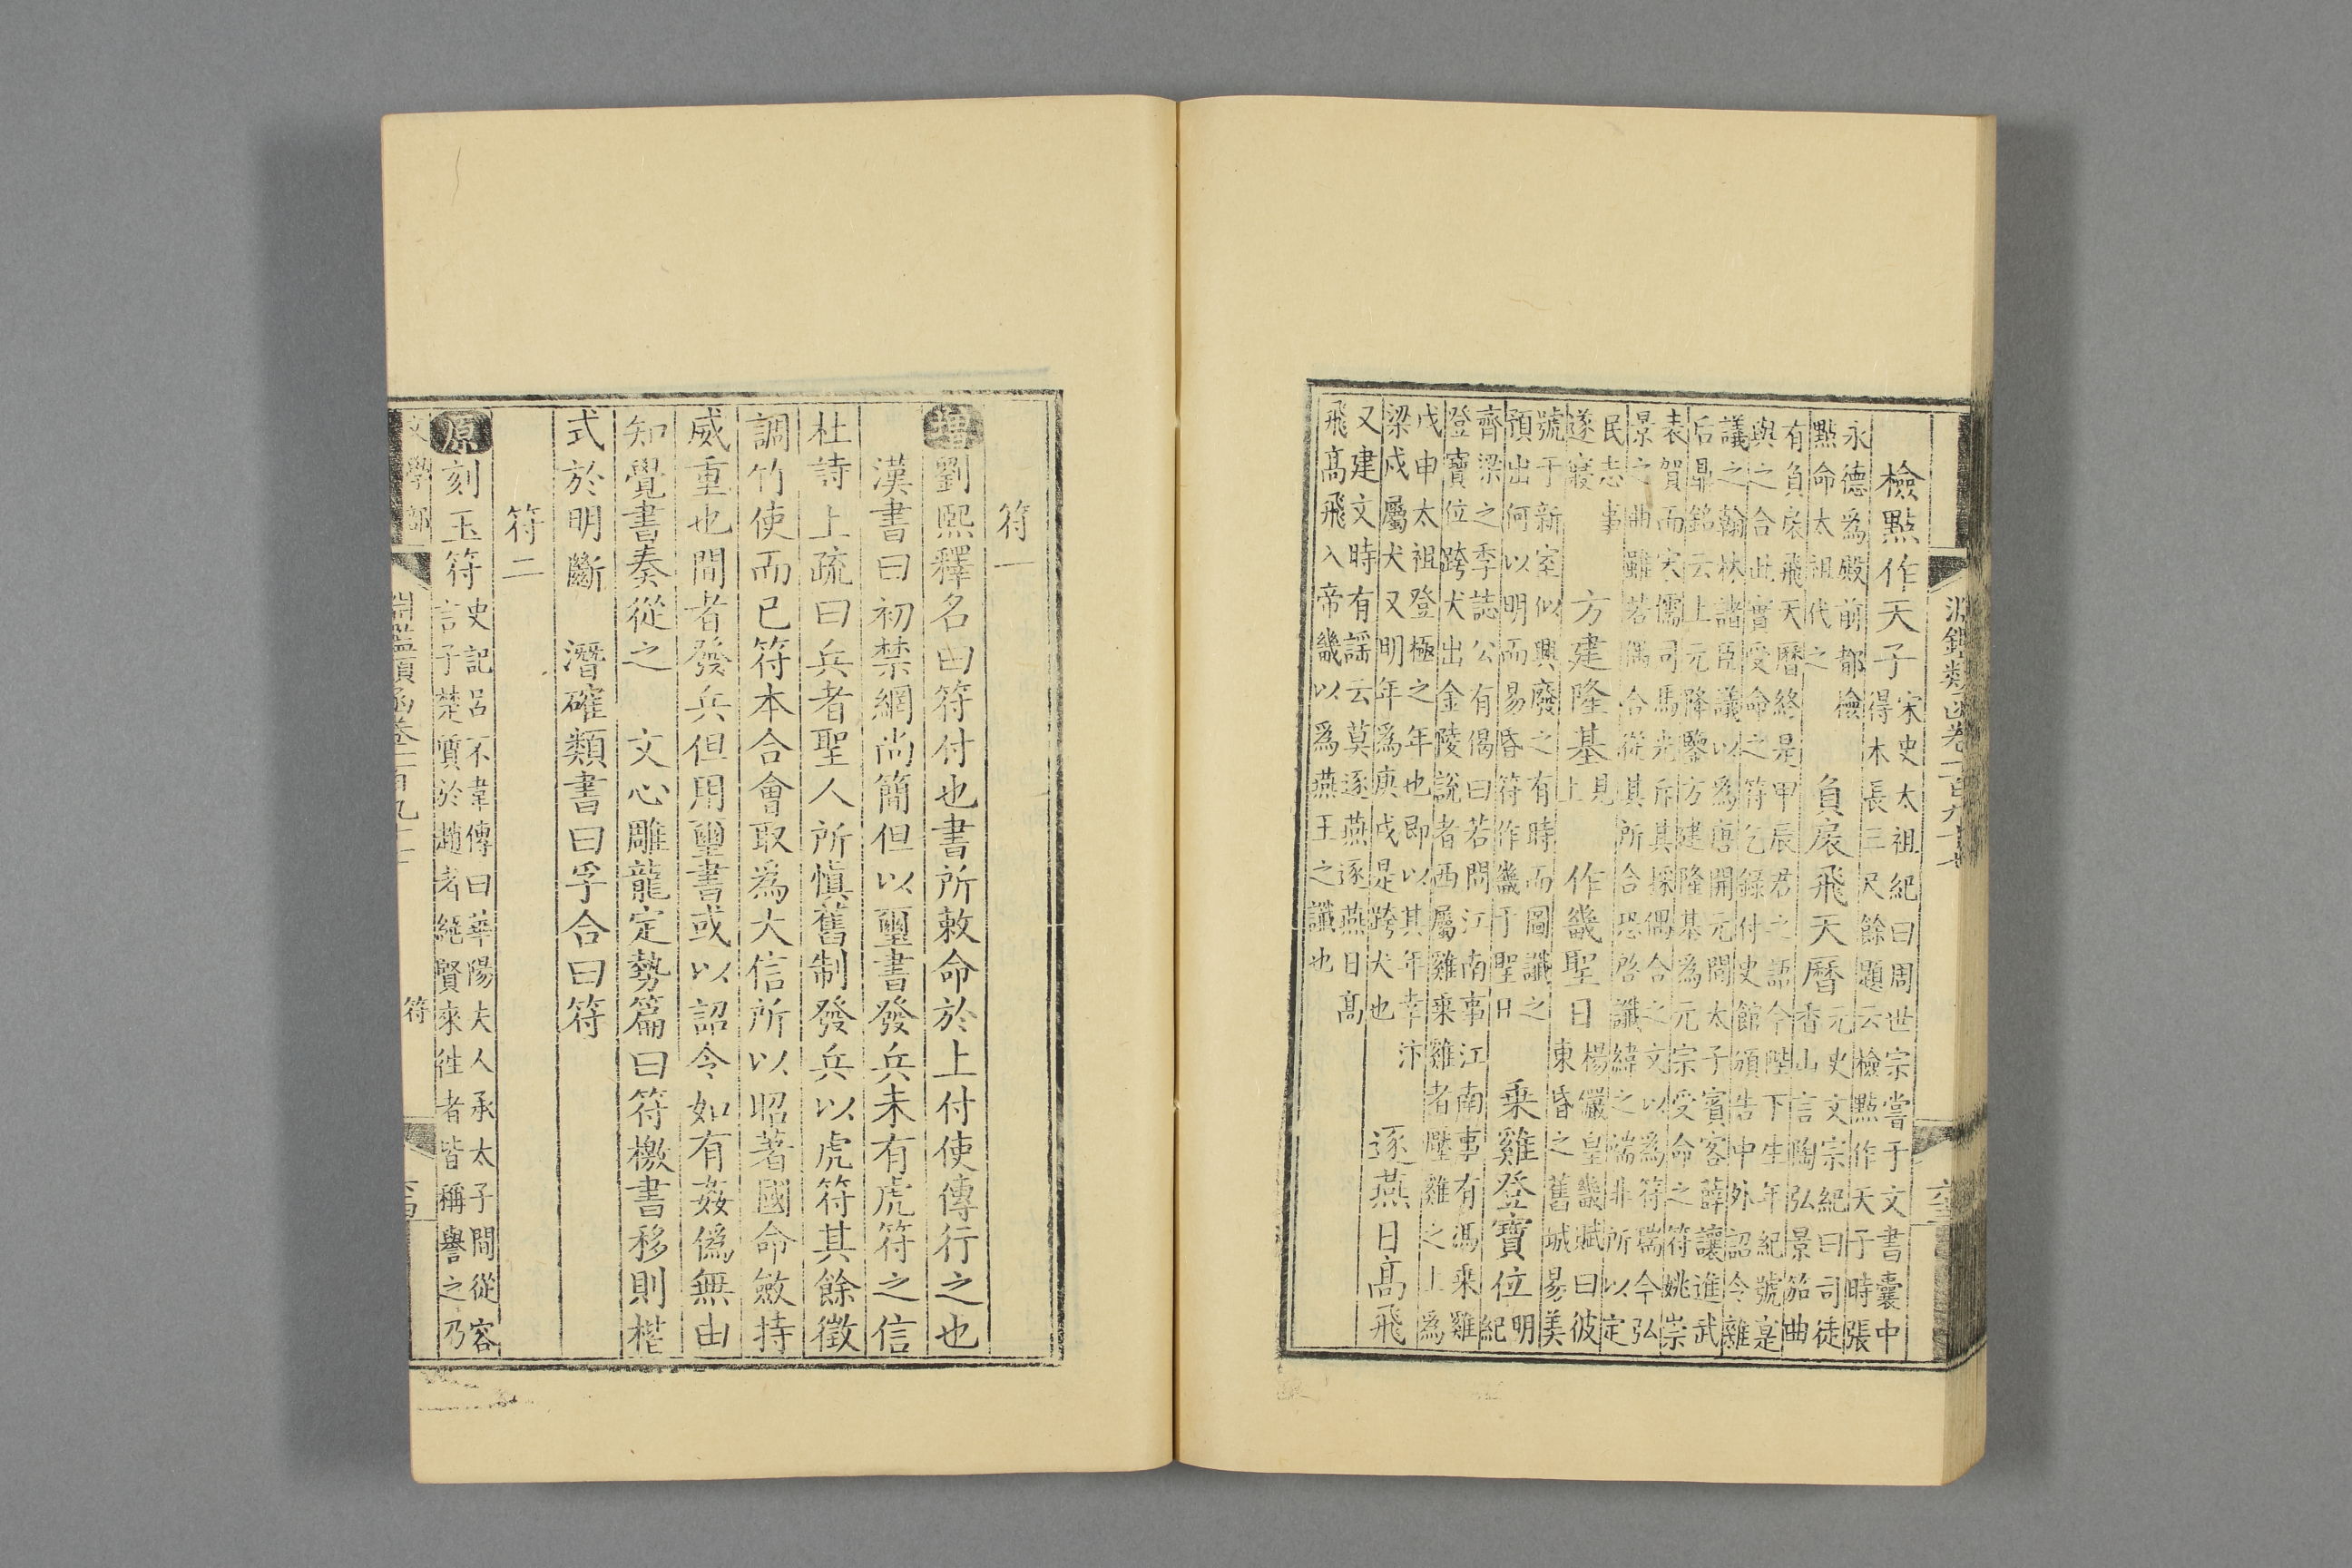 淵鑑類函卷一百九十七
檢點作天子
宋史太祖紀曰周世宗嘗于文書囊中
得木長三尺餘題云檢點作天子時張
永德爲殿前都檢
點命太祖代之
負扆飛天曆
元史文宗紀曰司徒
香山言陶弘景笳曲
有負扆飛天曆終是甲辰君之語今陛下生年紀號寔
與之合此實受命之符乞錄付史館頒告中外詔令雜
議之翰林諸臣議以爲唐開元間太子賓客薛讓進武
后鼎銘云上元降鑒方建隆基爲元宗受命之符姚崇
表賀而宋儒司馬光斥其採偶合之文以爲符瑞今弘
景之曲雖若偶合從其所合恐啓讖緯之端非所以定
民志事
遂寢
方建隆基
見
上
作畿聖日
楊儼皇畿賦曰彼
東昏之舊城易美
號于新室似興廢之有時而圖讖之
預出何以明而易昏符作畿于聖日
乘雞登寶位
明
紀
齊梁之季誌公有偈曰若問江南事江南事有馮乘雞
登寶位跨犬出金陵說者酉屬雞乘雞者壓雞之上爲
戊申太祖登極之年也即以其年幸汴
梁戍屬犬又明年爲庚戍是跨犬也
逐燕日高飛
又建文時有謠云莫逐燕逐燕日高
飛高飛入帝畿以爲燕王之讖也
符一
增劉熙釋名曰符付也書所敕命於上付使傳行之也
漢書曰初禁網尚簡但以璽書發兵未有虎符之信
杜詩上疏曰兵者聖人所慎舊制發兵以虎符其餘徵
調竹使而已符本合會取爲大信所以昭著國命斂持
威重也間者發兵但用璽書或以詔令如有姦僞無由
知覺書奏從之　文心雕龍定勢篇曰符檄書移則楷
式於明斷　潛確類書曰孚合曰符
符二
原刻玉符
史記呂不韋傳曰華陽夫人承太子間從容
言子楚質於趙者絕賢來往者皆稱譽之乃
淵鑑類函卷一百九十七
符